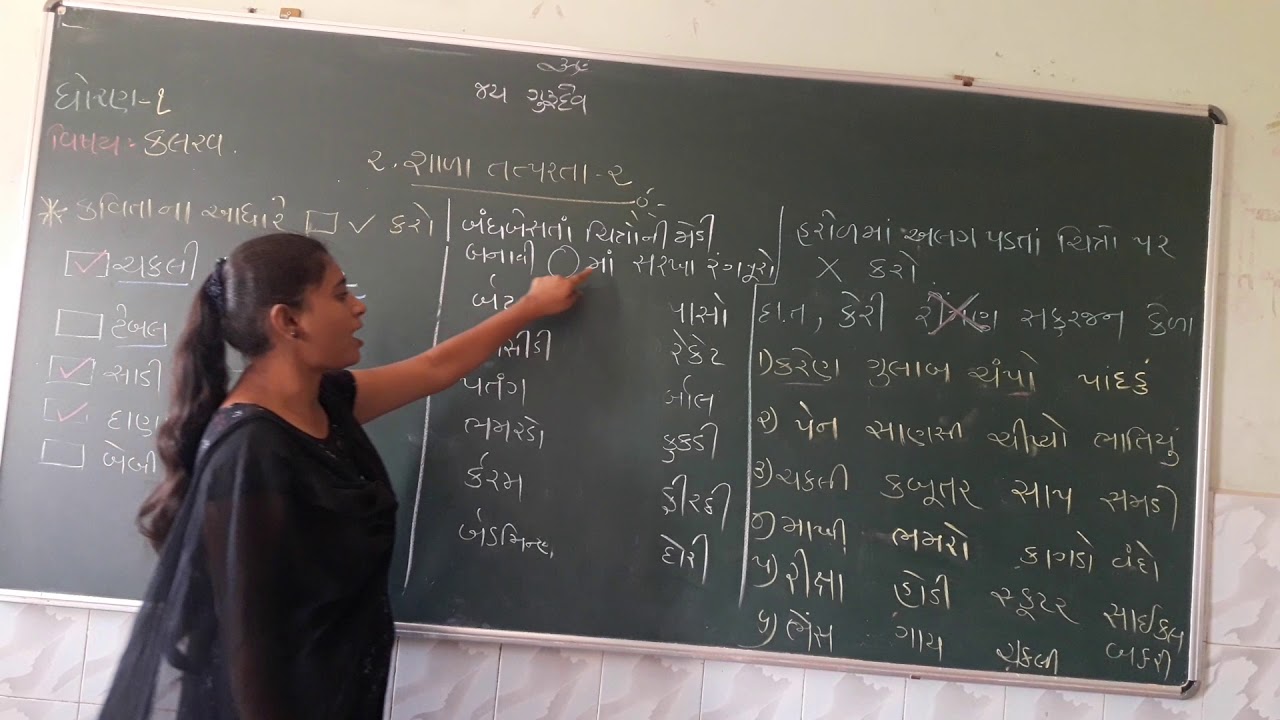 જય ગુરૂદેવ
ધોરણ-૧
વિષય:- કલરવ.
૨. શાળા તત્પરતા-૨
* કવિતાના આધારે □ ✓ કરો
☑ ચકલી
□ ટેબલ
☑ સાડી
☑ દાણ
□ બેબી
બંધબેસતાં ચિત્રોની જોડી
બનાવી ○ માં સરખા રંગ પૂરો
બેટ પાસો
સીડી રેકેટ
પતંગ બોલ
ભમરડો કુકડી
કેરમ ફીરકી
બેડમિન્ટ દોરી
હરોળમાં અલગ પડતાં ચિત્રો પર
X કરો.
દા.ત, કેરી રીંગણ સફરજન કેળા
૧) કરેણ ગુલાબ ચંપો પાંદડું
૨) પેન સાણસી ચીપ્યો ભાતિયું
૩) ચકલી કબૂતર સાપ સમડી
૪) માખી ભમરો કાગડો વંદો
૫) રીક્ષા હોડી સ્કૂટર સાઈકલ
૬) ભેંસ ગાય ચકલી બકરી